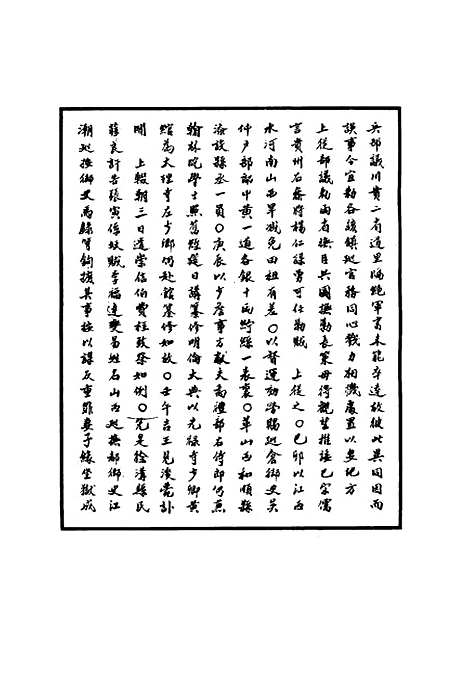 兵部議川貴二省道里隔絶軍書未能卒達故彼此異同因而
誤事今宜勑各該鎮巡官務同心戮力相機處置以安地方
上從部議勑兩省撫臣共圖撫勦長策毋得觀望推諉已宋儒
言貴州石叅將楊仁謀勇可仕勦賊　上從之〇己卯以江西
水河南山西旱減免田租有差〇以督運功陞賜總倉御史吳
仲户部郎中黄一道各銀十兩紵絲一表裏〇革山西和順縣
洛設縣丞一員〇庚辰以少詹事方獻夫為禮部右侍郎仍兼
翰林院學士照舊經筵日講纂修明倫大典以光禄寺少卿黄
綰為大理寺左少卿仍赴館纂修如故〇壬午吉王見浚薨訃
聞　上輟朝三日遣崇信伯費柱致祭如例〇先是徐溝縣民
薛良訐告張寅係妖賊李福達變易姓名山西巡撫都御史江
潮巡按御史馬録等鉤摭其事擬以謀反重罪妻子緣坐獄成